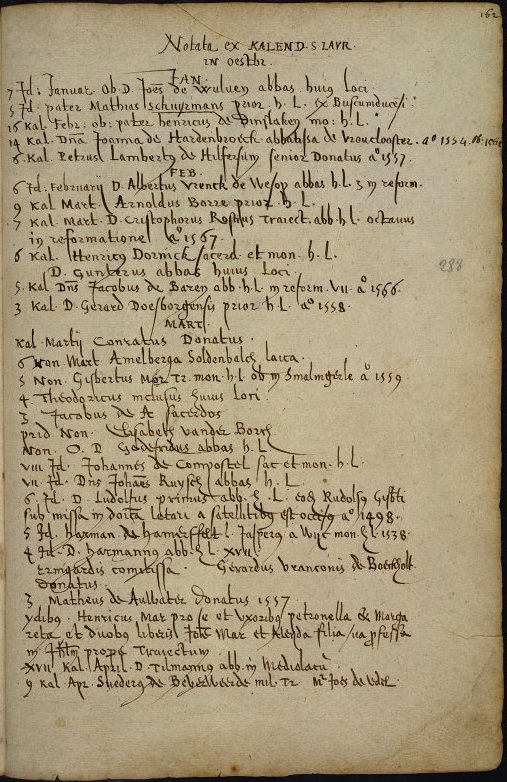 162
Notata ex KALEND. S LAVR.
IN oesthr.
IAN.
7 Id: Januar. Ob. D. Joes de Wulven abbas huius Loci
5 Id. pater Mathias Schuyrmans prior. h. L. ex Buscumducesi.
15 Kal. Febr: ob: pater henricus de Dinslaken mo: h. L.
14 Kal. Dna Joanna de Hardenbroeck abbatissa de Vrouclooster. aº 1554. ob.
8 Kal. Petrus Lambertus de Hilfersum senior Donatus aº 1557.
FEB.
6 Id. Februarij D. Albertus Vrenck de Wesop abbas h. L. 3 in reform.
9 Kal Mart. Arnoldus Borre prior h. L.
7 Kal. Mart. D. Cristophorus Traiect. abb. h. L. octavus
in reformatione aº 1567.
6 Kal. Henricus Dornick sacerd. et mon. h. L.
D. Gunterus abbas huius Loci.
5. Kal Dns Jacobus de Baren abb. h. L. in reform. VII. aº 1566.
3 Kal. D. Gerard Doesborgensis prior h L. aº 1558.
MART.
Kal. Martij Conratus Donatus.
6 Non Mart. Amelberga Soldenbalch laica.
5 Non. Gisbertus Mor Tr. mon. h. l. ob in Smalingerle aº 1559
4 Theodoricus inclusus huius Lori
3 Jacobus de A sacerdos
prid Non. Elisabeth vander Borch
Non. O. D Godefridus abbas h. L
VIII Id. Johannes de Compostel sac et mon. h. L.
VII. Id. Dns Johaes Ruysch abbas h. L
6. Id. D. Ludolfus primus abb. h. L. Rudolfo
sub missa in letari a satellitibus est occisus aº 1498.
5 Id. Harman de Hamersfelt l. Jasperus a Wyc mon. h. l. 1538.
4 Id. D. Harmannus abb. h. l. XVII.
Ermgardis comitissa. Gerardus Vranconis de Boecholt
Donatus.
3 Matheus de Aulbater Donatus 1557
ydibus. Henricus Mar pro se et Uxoribus petronella & Marga
reta et duobus liberis Joe Mar et filia
in prope Traiectum
XVII Kal. April. D. Tilmannus abb. in
9 Kal Apr. Suederus de Beverweerde mil. Tr. Mr Joes de
288